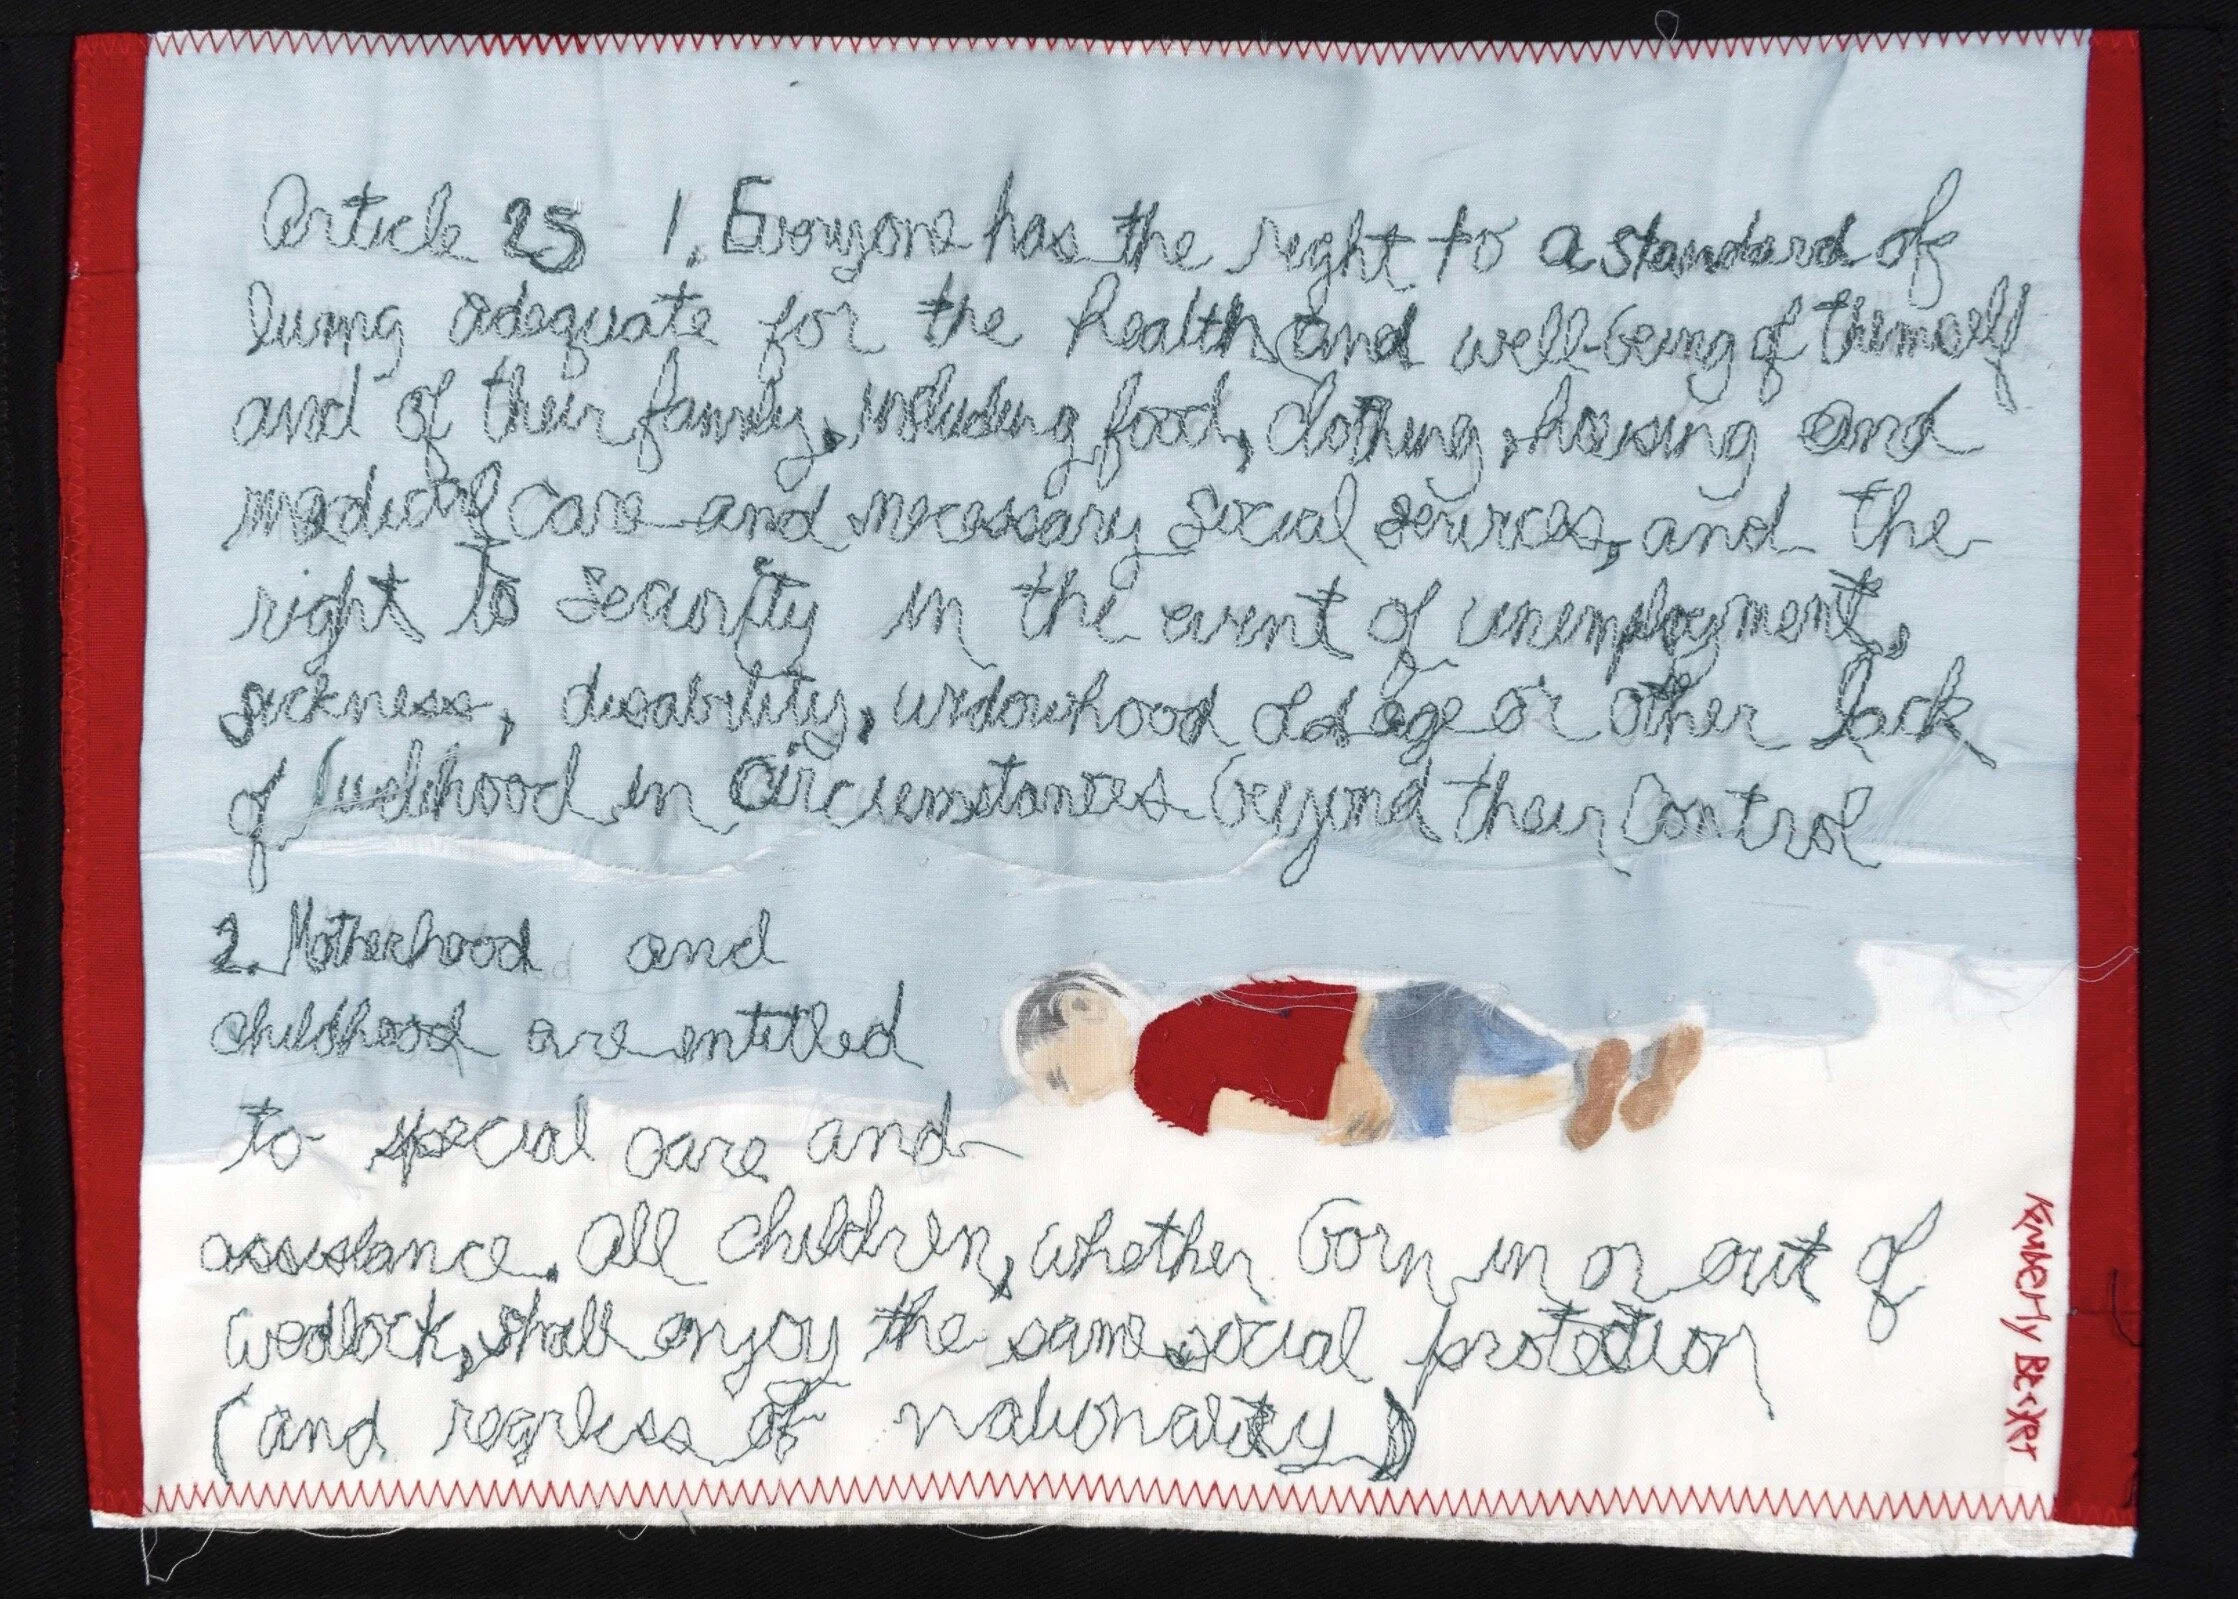 Article 25 1. Everyone has the right to a standard of
living adequate for the health and well-being of themself
and of their family, including food, clothing, housing and
medical care and necessary social services, and the
right to security in the event of unemployment,
sickness, disability, widowhood old age or other lack
of livelihood in circumstances beyond their control
2. Motherhood and
childhood are entitled
to special care and
assistance. All children, whether born in or out of
wedlock, shall enjoy the same social protection
(and regarless of nationality)
Kimberly Becker